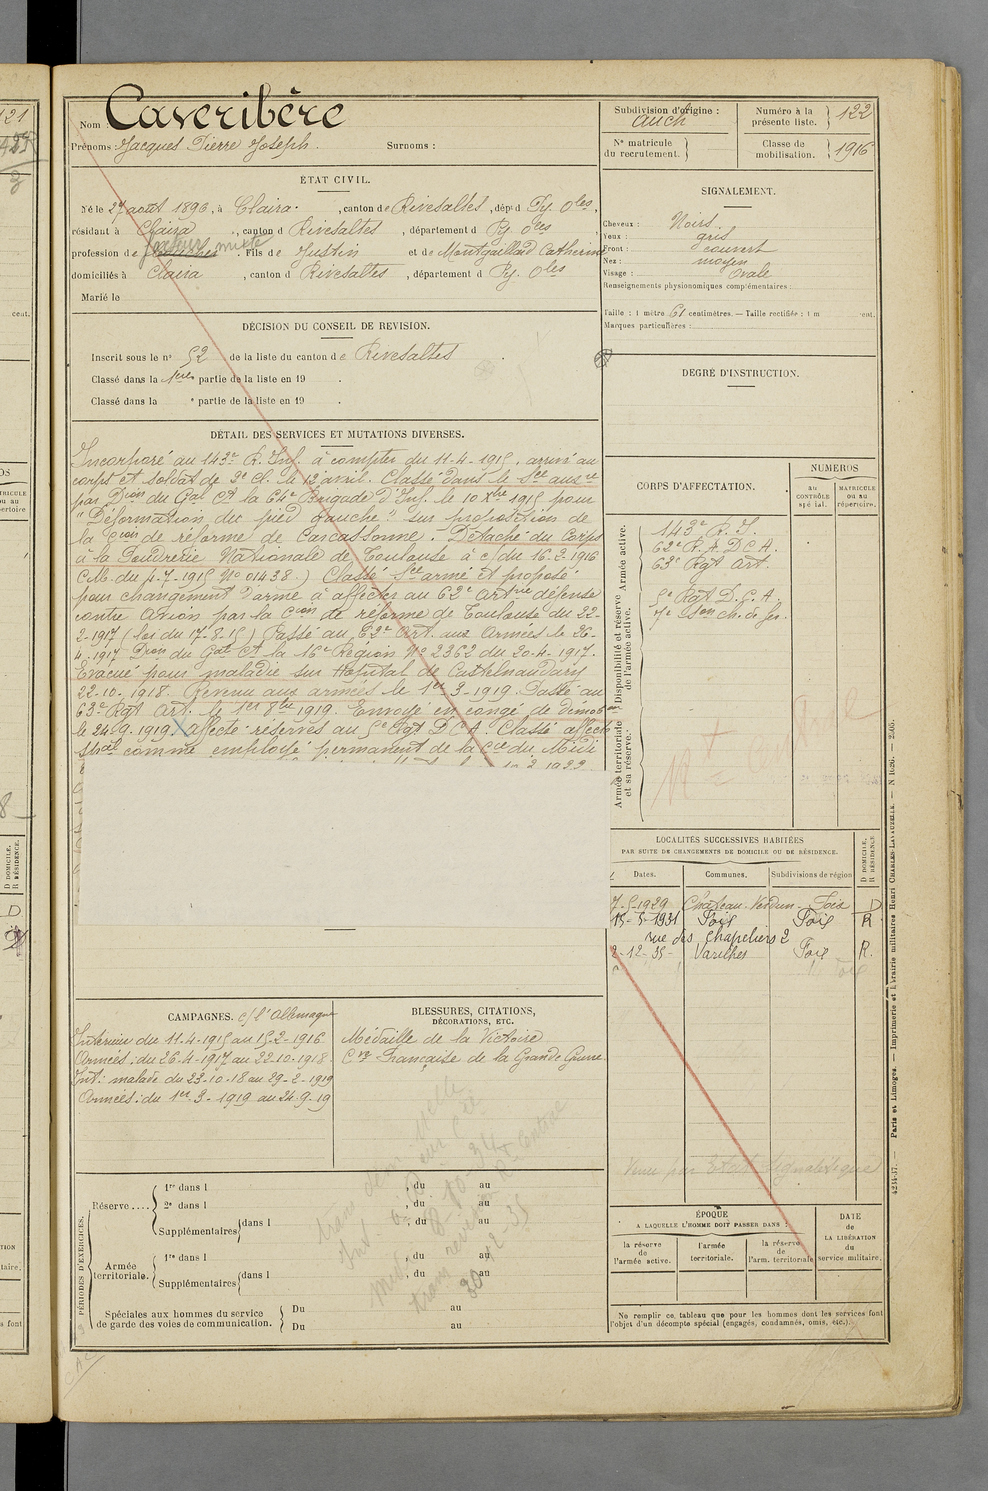 Nom : Caveribère
Prénoms : Jacques Pierre Joseph. Surnoms :
Subdivision d'origine : Auch
Numéro à la présente liste. 122
N° matricule du recrutement.
Classe de mobilisation. 1916
ÉTAT CIVIL.
Né le 27 août 1896, à Claira, canton de Rivesaltes, dépt d Py. Oles,
résidant à Claira, canton d Rivesaltes, département d Py. Oles
profession de mixte. Fils de Justin et de Montgaillard Catherine
domiciliés à Claira, canton d Rivesaltes, département d Py. Oles
Marié le
SIGNALEMENT.
Cheveux : Noirs.
Yeux : gris
Front : couvert
Nez : moyen
Visage : Ovale
Renseignements physionomiques complémentaires :
Taille : 1 mètre 61 centimètres. — Taille rectifiée : 1 m cent.
Marques particulières :
DÉCISION DU CONSEIL DE REVISION.
Inscrit sous le n° 52 de la liste du canton de Rivesaltes.
Classé dans la 1ere partie de la liste en 19 .
Classé dans la e partie de la liste en 19 .
DEGRÉ D'INSTRUCTION.
DÉTAIL DES SERVICES ET MUTATIONS DIVERSES.
Incorporé au 143e R. Inf. à compter du 11-4-1915, arrivé au
corps et soldat de 2e cl. le 12 avril. Classé dans le Sce auxre
par Dion du Gal Ct la 64e Brigade d'Inf. le 10 Xbre 1915 pour
"Déformation du pied gauche" sur proposition de
la Cion de réforme de Carcassonne. Détaché du Corps
à la Poudrerie Nationale de Toulouse à c/ du 16-2-1916
(C.M. du 4-7-1915 N° 01438.) Classé Sce armé et proposé
pour changement d'arme à affecter au 62e Artrie défense
contre Avion par la Cion de réforme de Toulouse du 22-
2-1917 (loi du 17-8-15) Passé au 62e Art. aux Armées le 26-
4-1917 Dion du Gal Ct la 16e Région N° 2362 du 20-4-1917.
Evacué pour maladie sur Hôpital de Castelnaudary
22-10-1918. Revenu aux armées le 1er 3-1919. Passé au
63e Rgt Art. le 1er 8bre 1919. Envoyé en congé de démob
le 24-9-1919. Affecté réserves au 5e Rgt D.C.A. Classé affecté
Spal comme employé permanent de la Cie du Midi
CORPS D'AFFECTATION.
NUMÉROS
AU CONTRÔLE spécial.
MATRICULE ou au répertoire.
Armée active.
Disponibilité et réserve de l'armée active.
Armée territoriale et sa réserve.
143e R. I.
62e R. A. D C A.
63e Rgt Art.
5e Rgt D. C. A.
7e Son ch. de fer.
LOCALITÉS SUCCESSIVES HABITÉES
PAR SUITE DE CHANGEMENTS DE DOMICILE OU DE RÉSIDENCE.
Dates. Communes. Subdivisions de région D DOMICILE. R RÉSIDENCE.
7-5-1929 Château-Verdun - Foix D
15-5-1931 Foix Foix R
rue des Chapeliers 2
2-12-35- Varilhes Foix R.
Venu par Etat signalétique
CAMPAGNES. c/ l'Allemagne
Intérieur du 11-4-1915 au 15-2-1916
Armées : du 26-4-1917 au 22-10-1918
Int : malade du 23-10-18 au 29-2-1919
Armées : du 1er-3-1919 au 24-9-19
BLESSURES, CITATIONS, DÉCORATIONS, ETC.
Médaille de la Victoire
Cve Française de la Grande Guerre.
PÉRIODES D'EXERCICES.
Réserve....
1re dans l , du au
2e dans l , du au
Supplémentaires dans l , du au
Armée territoriale.
1re dans l , du au
Supplémentaires dans l , du au
Spéciales aux hommes du service de garde des voies de communication.
Du au
Du au
ÉPOQUE
A LAQUELLE L'HOMME DOIT PASSER DANS :
la réserve de l'armée active.
l'armée territoriale.
la réserve de l'arm. territoriale
DATE de LA LIBÉRATION du service militaire.
Ne remplir ce tableau que pour les hommes dont les services font
l'objet d'un décompte spécial (engagés, condamnés, omis, etc.).
4234-37. — Paris et Limoges. — Imprimerie et Librairie militaires Henri CHARLES-LAVAUZELLE.